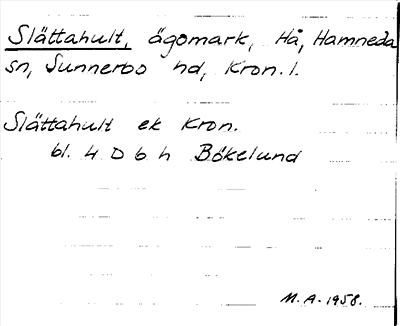 Slättahult, ägomark, Hå, Hamneda
sn, Sunnerbo hd, Kron. l.
Slättahult ek Kron.
bl. 4 D 6 h Bökelund
M.A. 1958.